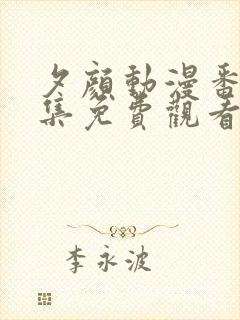 夕顔動漫番
集免費觀看
李永波